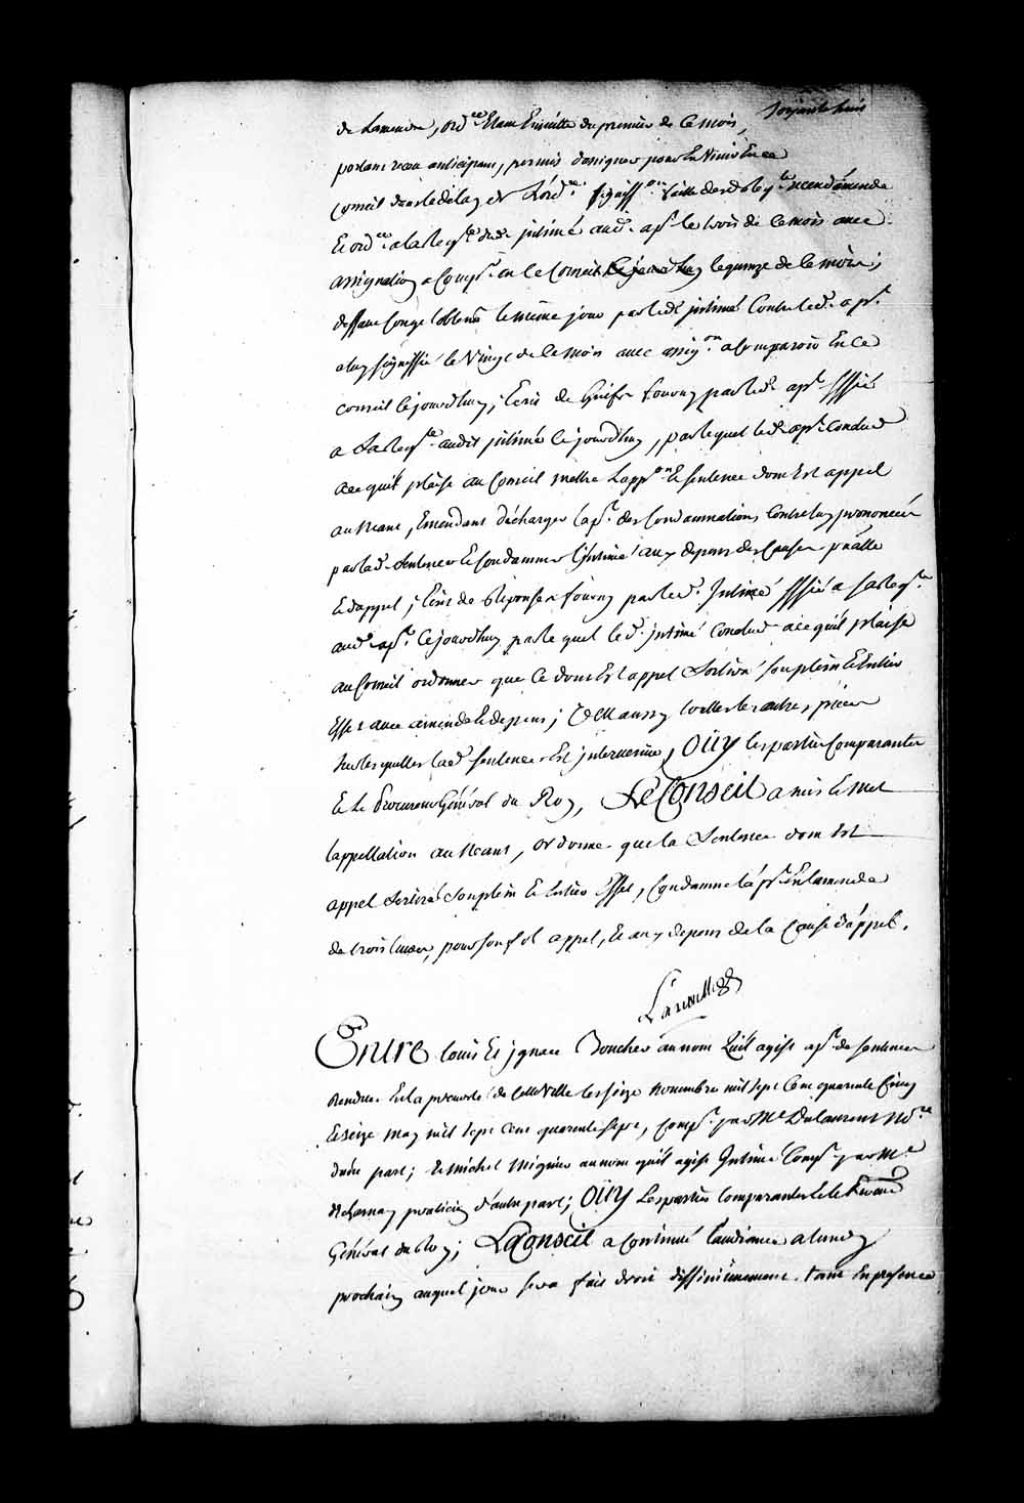 soixante huit
de Lamende, ord.ce Etant Ensuitte du premier de ce mois,
portant receu anticipant, permis d'assigner pour En Venir En ce
Conseil dans le delay de L'ord.ce signiff.on faitte desd. req.te
Et ord.ce a la Req.te dud. intimé aud. ap.t le trois de ce mois avec
assignation a Comp.r en ce Conseil le quinze de ce mois;
deffaut Congé obtenu le même jour par led. intimé Contre led. ap.t
a luy signiffié le Vingt de ce mois avec assig.on a Comparoir En Ce
Conseil Cejourdhuy; Ecrit de Griefs fourny par led. ap.t Siffié
a Sa Req.te audit intimé Cejourdhuy, par lequel led. ap.t Conclud
a ce quil plaise au Conseil mettre Lapp.on Et sentence dont Est appel
au Neant, Emendant décharger l'ap.t des Condamnations Contre luy prononcées
par lad. Sentence Et Condamner l'Intimé aux depens des Causes p'alle
Et dappel; Ecrit de Réponses fourny par led. Intimé siffié a sa Req.te
aud. ap.t Cejourdhuy par lequel led. intimé Conclud a ce quil plaise
au Conseil ordonner que Ce dont Est appel Sortira son plein Et Entier
Effet avec amende Et depens; Veu aussy les autres pieces
sur lesquelles lad. sentence Est intervenüe, Oüy les parties Comparantes
Et Le Procureur Général du Roy, Le Conseil a mis Et Met
l'appellation au Neant, ordonne que la Sentence dont Est
appel Sortira Son plein Et Entier Effet, Condamne l'ap.t En Lamende
de trois livres pour son fol appel, Et aux depens de la Cause d'appel.
Entre Louis Et ignace Boucher au nom quils agist ap.t de sentence
Rendue En la prevosté de Cette Ville les seize novembre mil sept Cent quarante Cinq
Et seize may mil sept cent quarante sept, Comp.t par M.e Dulaurent No.re
dune part; Et Michel Mignier au nom quil agist Intimé Comp.t par M.e
praticien d'autre part; Oüy Les parties Comparantes Et Le Procureur
Général du Roy; Le Conseil a Continué l'audiance a lundy
prochain auquel jour sera fait droit diffinitivement tant En presence